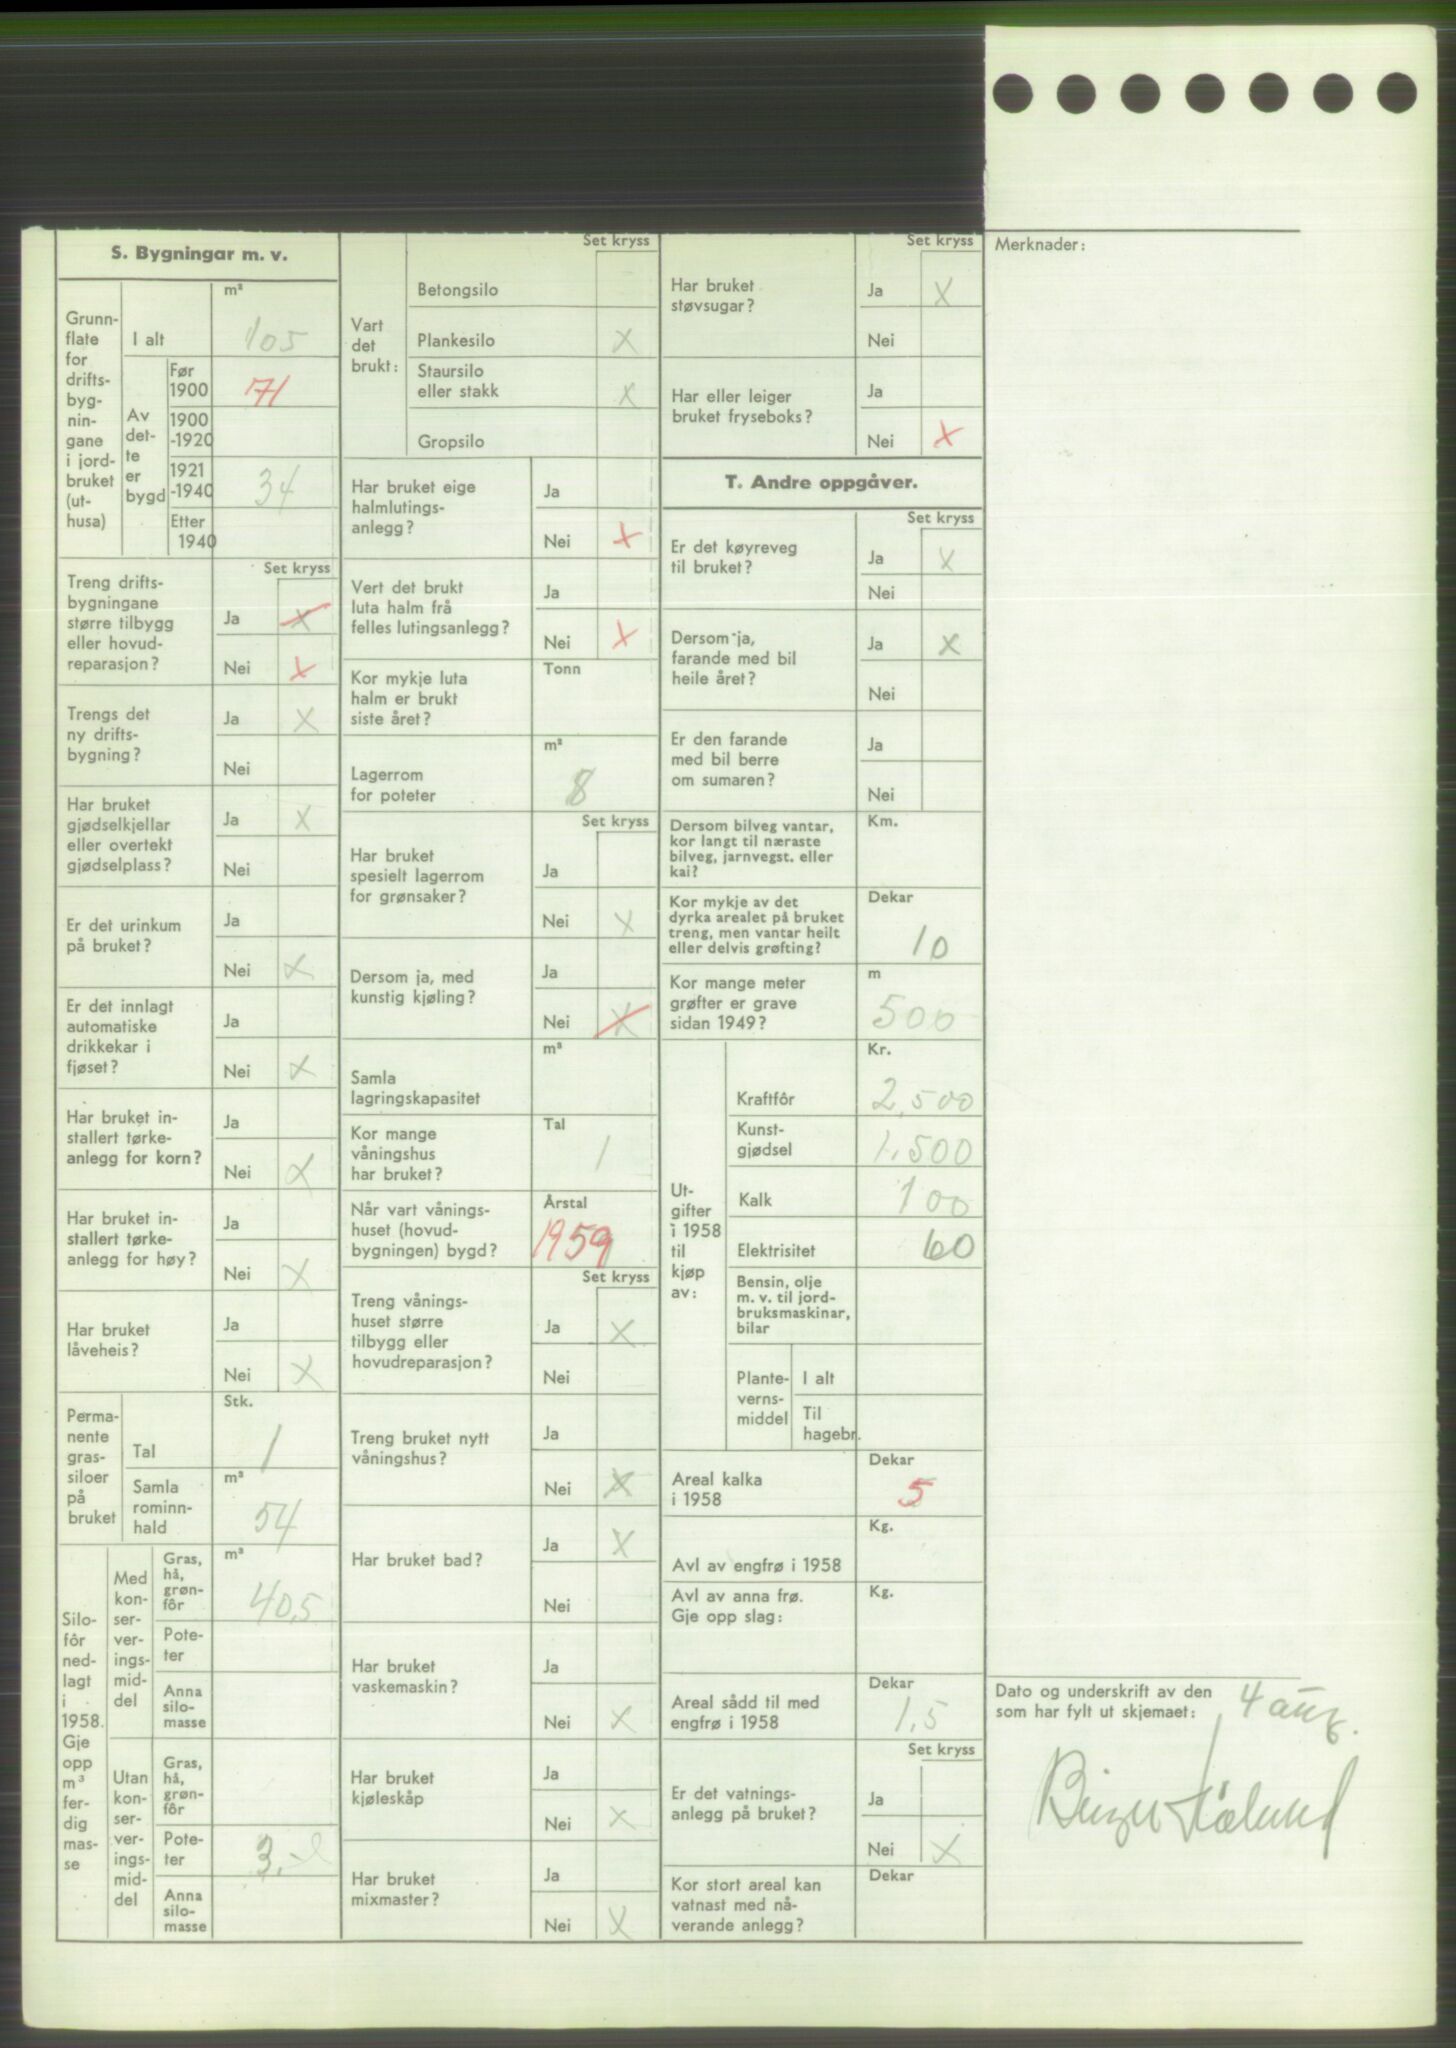 S. Bygningar m. v.
Grunn-
flate
for
drifts-
byg-
nin-
gane
i jord-
bruket
(ut-
husa)
m²
I alt
105
Av
det-
te
er
bygd
Før
1900
71
1900
-1920
1921
-1940
34
Etter
1940
Set kryss
Treng drifts-
bygningane
større tilbygg
eller hovud-
reparasjon?
Ja
X
Nei
X
Trengs det
ny drifts-
bygning?
Ja
X
Nei
Har bruket
gjødselkjellar
eller overtekt
gjødselplass?
Ja
X
Nei
Er det urinkum
på bruket?
Ja
Nei
X
Er det innlagt
automatiske
drikkekar i
fjøset?
Ja
Nei
X
Har bruket in-
stallert tørke-
anlegg for korn?
Ja
Nei
X
Har bruket in-
stallert tørke-
anlegg for høy?
Ja
Nei
X
Har bruket
låveheis?
Ja
Nei
X
Perma-
nente
gras-
siloer
på
bruket
Stk.
Tal
1
m³
Samla
rominn-
hald
54
Silo-
fôr
ned-
lagt
i
1958.
Gje
opp
m³
fer-
dig
mas-
se
Med
kon-
ser-
ver-
ings-
mid-
del
m³
Gras,
hå,
grøn-
fôr
40,5
Pote-
ter
Anna
silo-
masse
Utan
kon-
ser-
ver-
ings-
mid-
del
Gras,
hå,
grøn-
fôr
Pote-
ter
3,-
Anna
silo-
masse
Set kryss
Vart
det
brukt:
Betongsilo
Plankesilo
X
Staursilo
eller stakk
X
Gropsilo
Har bruket eige
halmlutings-
anlegg?
Ja
Nei
X
Vert det brukt
luta halm frå
felles lutingsanlegg?
Ja
Nei
X
Kor mykje luta
halm er brukt
siste året?
Tonn
Lagerrom
for poteter
m²
8
Set kryss
Har bruket
spesielt lagerrom
for grønsaker?
Ja
Nei
X
Dersom ja, med
kunstig kjøling?
Ja
Nei
X
Samla
lagringskapasitet
m³
Kor mange
våningshus
har bruket?
Tal
1
Når vart vånings-
huset (hovud-
bygningen) bygd?
Årstal
1959
Set kryss
Treng vånings-
huset større
tilbygg eller
hovudreparasjon?
Ja
X
Nei
Treng bruket nytt
våningshus?
Ja
Nei
X
Har bruket bad?
Ja
X
Nei
Har bruket
vaskemaskin?
Ja
Nei
X
Har bruket
kjøleskåp
Ja
Nei
X
Har bruket
mixmaster?
Ja
Nei
X
Set kryss
Har bruket
støvsugar?
Ja
X
Nei
Har eller leiger
bruket fryseboks?
Ja
Nei
X
T. Andre oppgåver.
Set kryss
Er det køyreveg
til bruket?
Ja
X
Nei
Dersom ja,
farande med bil
heile året?
Ja
X
Nei
Er den farande
med bil berre
om sumaren?
Ja
Nei
Dersom bilveg vantar,
kor langt til næraste
bilveg, jarnvegst. eller
kai?
Km.
Kor mykje av det
dyrka arealet på bruket
treng, men vantar heilt
eller delvis grøfting?
Dekar
10
Kor mange meter
grøfter er grave
sidan 1949?
m
500
Ut-
gifter
i 1958
til
kjøp
av:
Kr.
Kraftfôr
2,500
Kunst-
gjødsel
1,500
Kalk
100
Elektrisitet
60
Bensin, olje
m. v. til jord-
bruksmaskinar,
bilar
Plante-
verns-
middel
I alt
Til
hagebr.
Areal kalka
i 1958
Dekar
5
Avl av engfrø i 1958
Kg.
Avl av anna frø.
Gje opp slag:
Kg.
Areal sådd til med
engfrø i 1958
Dekar
1,5
Set kryss
Er det vatnings-
anlegg på bruket?
Ja
Nei
X
Kor stort areal kan
vatnast med nå-
verande anlegg?
Dekar
Merknader:
Dato og underskrift av den
som har fylt ut skjemaet:
4 aug.
Birger